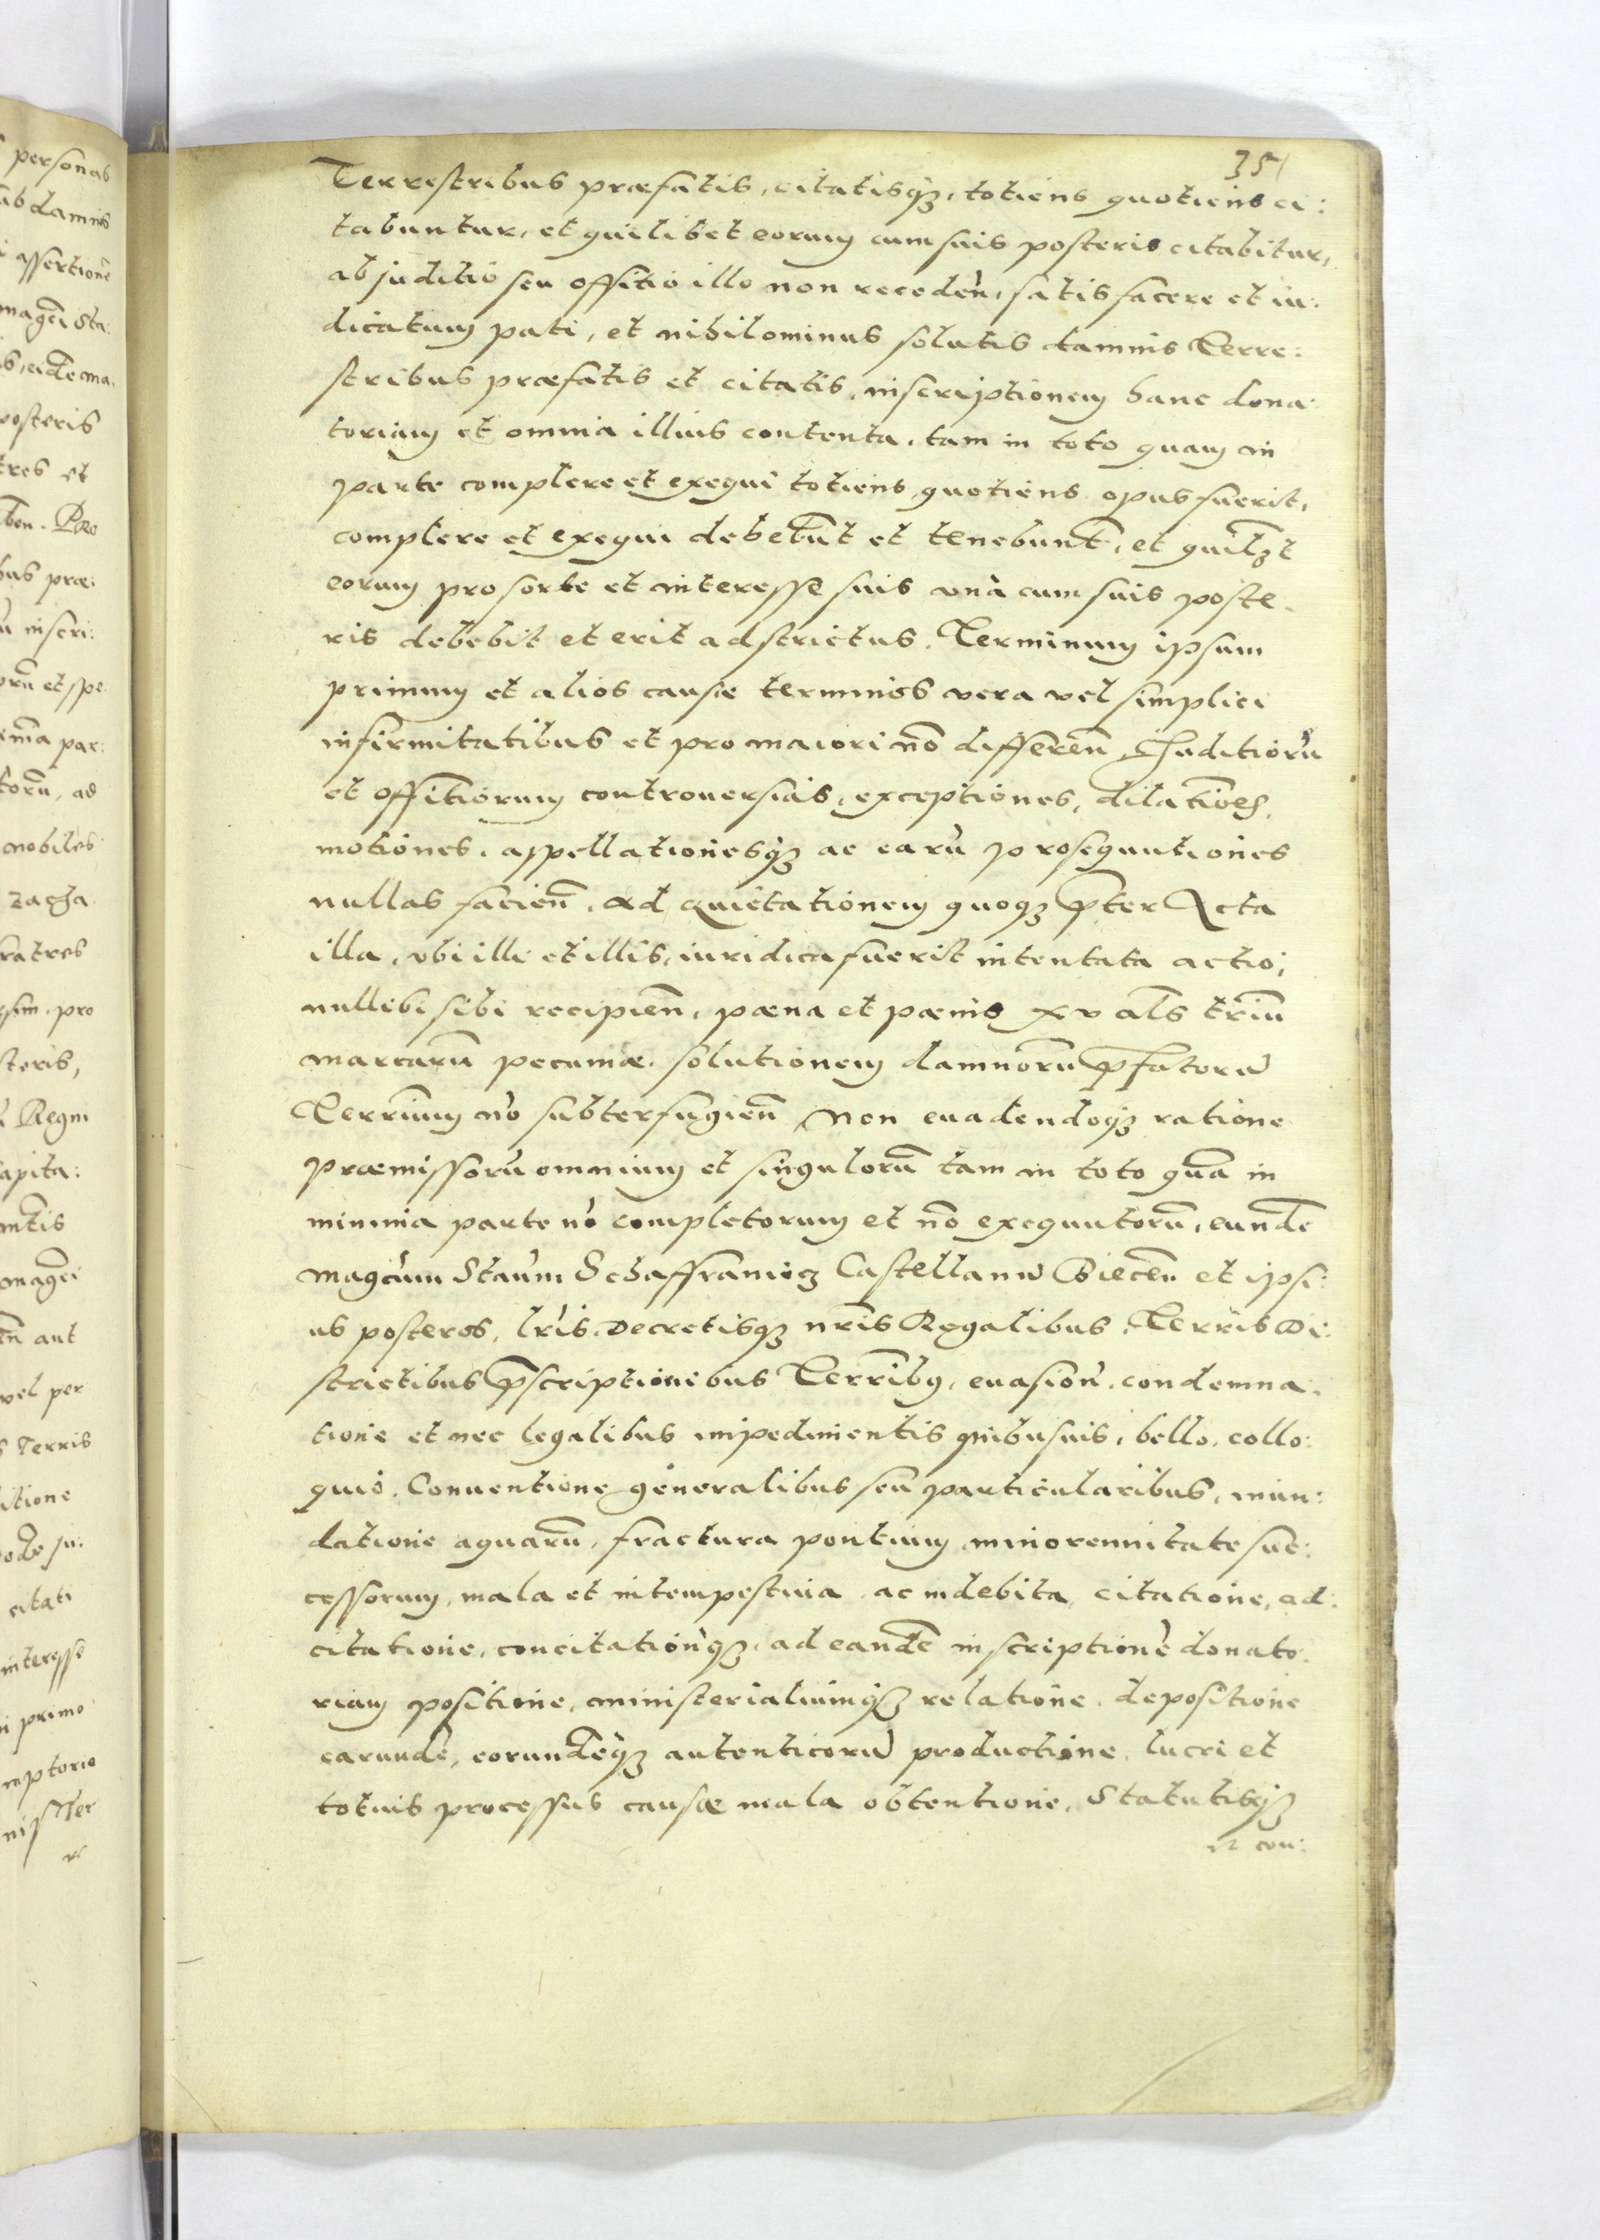 personas
ab damnis
i assertione
magci Sta:
eidē ma:
posteris
tres et
ben. Pro
bus præ:
inscri:
orū et spe
par:
torū, ad
nobiles
zacha
ratres
pro
steris,
Regni
capita:
magci
aut
vel per
Terris
itione
citati
interesse
i primo
mptorio
35
Terrestribus præfatis, citatisqʒ, totiens quotiens ci:
tabuntur, et quilibet eorum cum suis posteris citabitur,
ab juditio seu offitio illo non recedeñ, satisfacere et iu:
dicatum pati, et nihilominus solutis damnis Terre:
stribus præfatis et citatis, inscriptionem hanc dona:
toriam et omnia illius contenta, tam in toto quam in
parte complere et exequi totiens quotiens opus fuerit,
complere et exequi debebūt et tenebunt̃, et quilʒt
eorum pro sorte et interesse suis unà cum suis poste:
ris debebit et erit adstrictus. Terminum ipsum
primum et alios causæ terminos vera vel simplici
infirmitatibus et pro maiori nō differeñ Juditiorū
et offitiorum controuersias, exceptiones, dilatiōes,
motiones, appellationesqʒ ac earū prosequutiones
nullas facieñ. Ad quietationem quoqʒ p̄ter Acta
illa, vbi illi et illis, iuridica fuerit intentata actio,
nullibi sibi recipieñ, pæna et pænis xv al̄s triū
marcarū pecuniæ. solutionem damnorū p̄fatorū
Terrīum nō subterfugieñ Non euadendoqʒ ratione
præmissorū omnium et singulorū tam in toto quā in
minima parte nō completorum et nō exequutorū, eundē
magcum Staūm Schaffraniecz Castellanū Bieceñ et ipsi:
us posteros, lr̄is, Decretisqʒ nr̄is Regalibus, Terris Di:
strictibus p̄scriptionibus Terrībꝰ, euasioñ. condemna:
tione et nec legalibus impedimentis quibusuis, bello, collo:
quio, Conuentione generalibus seu particularibus, inun:
datione aquarū, fractura pontium minorennitate suc:
cessorum, mala et intempestiua ac indebita citatione, ad:
citatione, concitationeqʒ, ad eandē inscriptionē donato:
riam positione, ministerialiumqʒ relatione, depositione
earundē, eorundēqʒ autenticorū productione, lucri et
totius processus causæ mala obtentione, Statutisqʒ
et con: